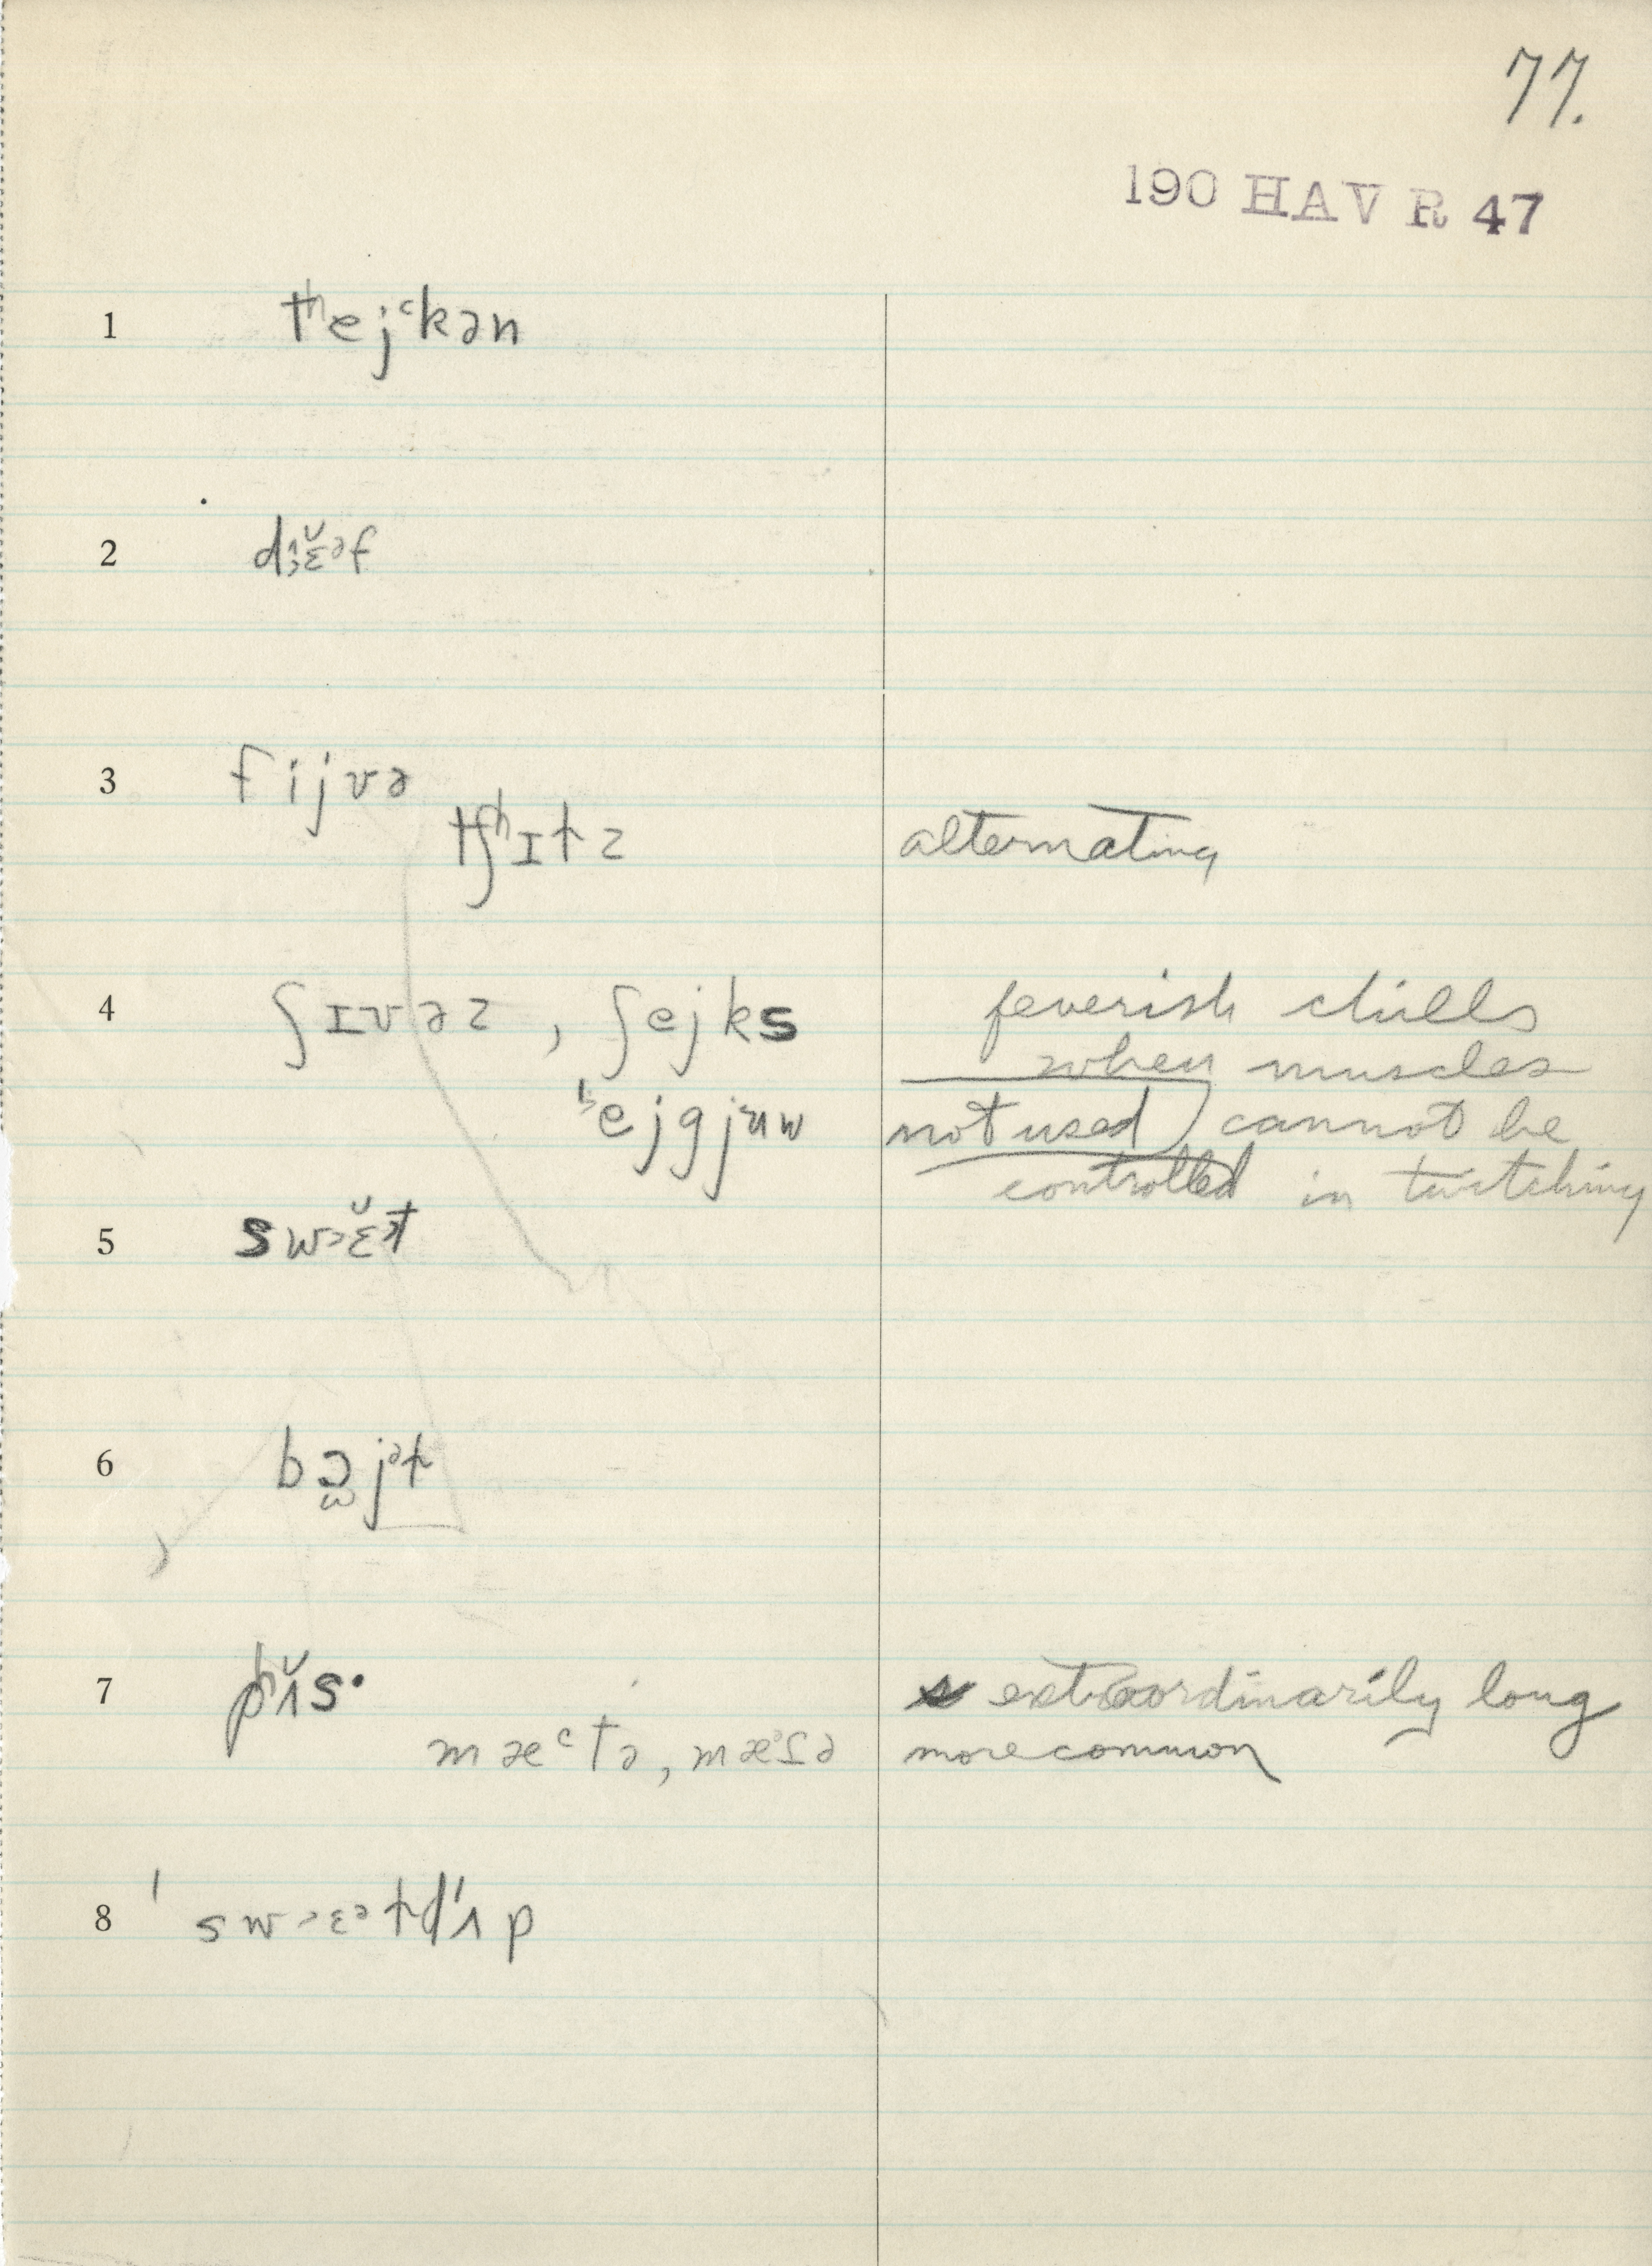 77.
190 HAV R 47
1 tʰejᶜkən
2 dɛ̆ᵊf
3 fijvə
tʃʰɪtz alternating
4 ʃɪvəz , ʃejks feverish chills
when muscles
ejgjuw not used) cannot be
controlled in twitching
5 swɛ̆ᵊt
6 bɔjᵊt
7 pʰʌ̆s· s extraordinarily long
mæᶜtə, mæᵊsə more common
8 ˈswɛᵊtdˈʌp